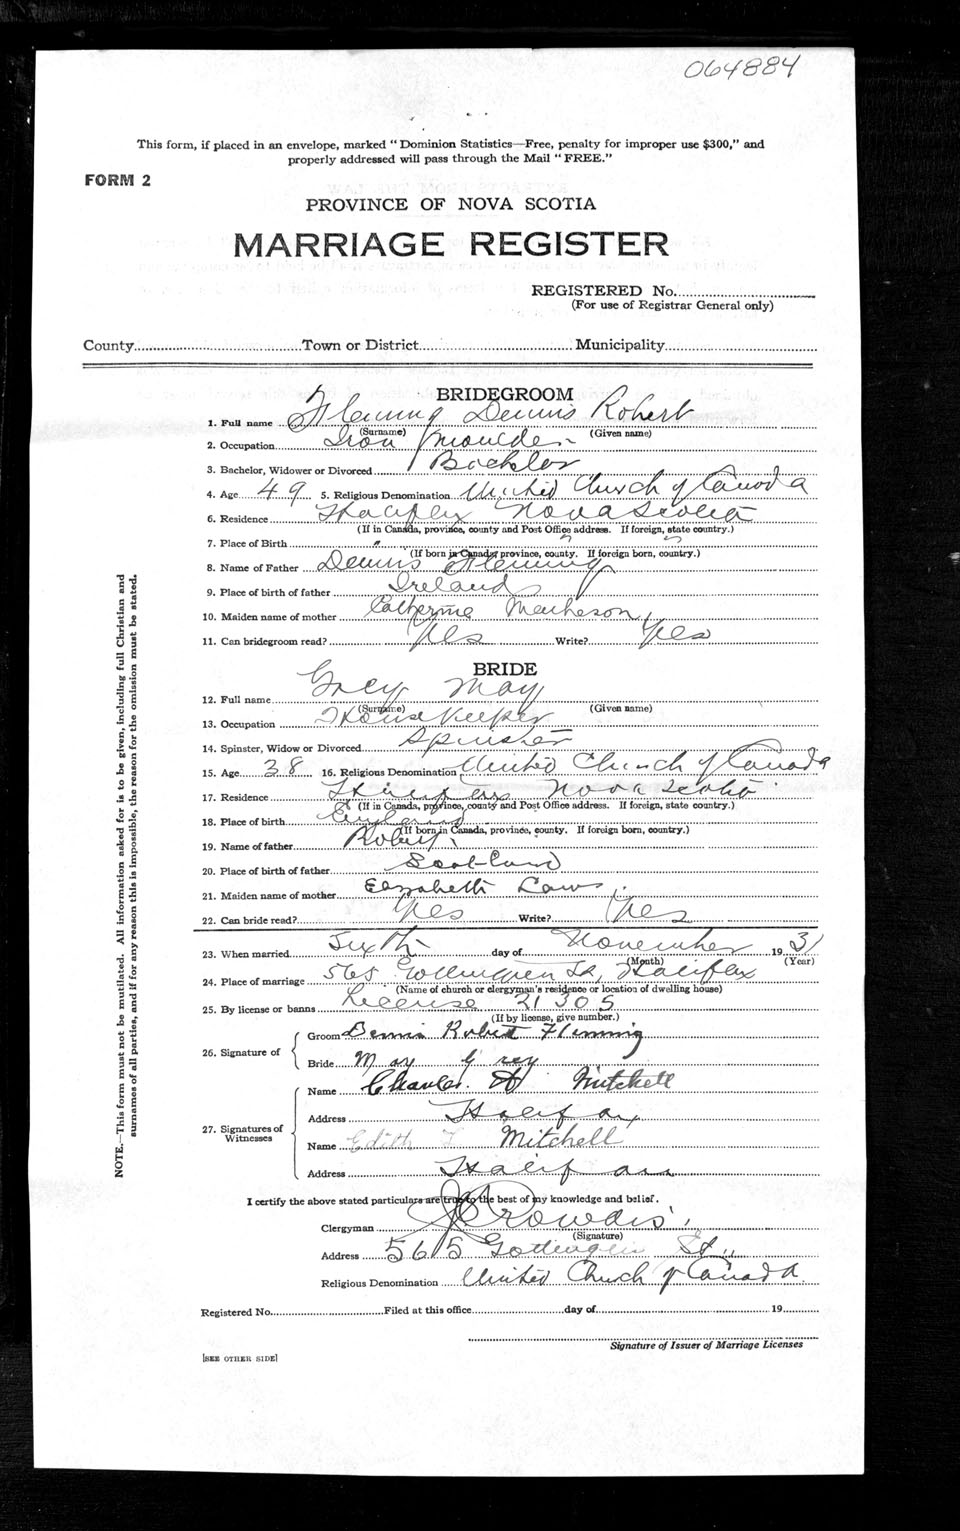 064884
This form, if placed in an envelope, marked “Dominion Statistics—Free, penalty for improper use $300,” and
properly addressed will pass through the Mail “FREE.”
FORM 2
PROVINCE OF NOVA SCOTIA
MARRIAGE REGISTER
REGISTERED No.
(For use of Registrar General only)
County Town or District Municipality
BRIDEGROOM
1. Full name Fleming Dennis Robert
(Surname) (Given name)
2. Occupation Iron Moulder
3. Bachelor, Widower or Divorced Bachelor
4. Age 49 5. Religious Denomination United Church of Canada
6. Residence Halifax Nova Scotia
(If in Canada, province, county and Post Office address. If foreign, state country.)
7. Place of Birth " " "
(If born in Canada, province, county. If foreign born, country.)
8. Name of Father Dennis Fleming
9. Place of birth of father Ireland
10. Maiden name of mother Catherine Matheson
11. Can bridegroom read? Yes Write? Yes
BRIDE
12. Full name Grey May
(Surname) (Given name)
13. Occupation Housekeeper
14. Spinster, Widow or Divorced Spinster
15. Age 38 16. Religious Denomination United Church of Canada
17. Residence Halifax Nova Scotia
(If in Canada, province, county and Post Office address. If foreign, state country.)
18. Place of birth England
(If born in Canada, province, county. If foreign born, country.)
19. Name of father Robert
20. Place of birth of father Scotland
21. Maiden name of mother Elizabeth Laws
22. Can bride read? Yes Write? Yes
23. When married Sixth day of November 1931
(Month) (Year)
24. Place of marriage 565 Halifax
(Name of church or clergyman's residence or location of dwelling house)
25. By license or banns License 21305
(If by license, give number.)
26. Signature of Groom Dennis Robert Fleming
Bride May Grey
27. Signatures of Witnesses Name Charles Mitchell
Address Halifax
Name Edith Mitchell
Address Halifax
I certify the above stated particulars are true to the best of my knowledge and belief.
Clergyman Crowdis
(Signature)
Address 565 Gottingen St.
Religious Denomination United Church of Canada
Registered No. Filed at this office day of 19
Signature of Issuer of Marriage Licenses
[SEE OTHER SIDE]
NOTE.—This form must not be mutilated. All information asked for is to be given, including full Christian and
surnames of all parties, and if for any reason this is impossible, the reason for the omission must be stated.